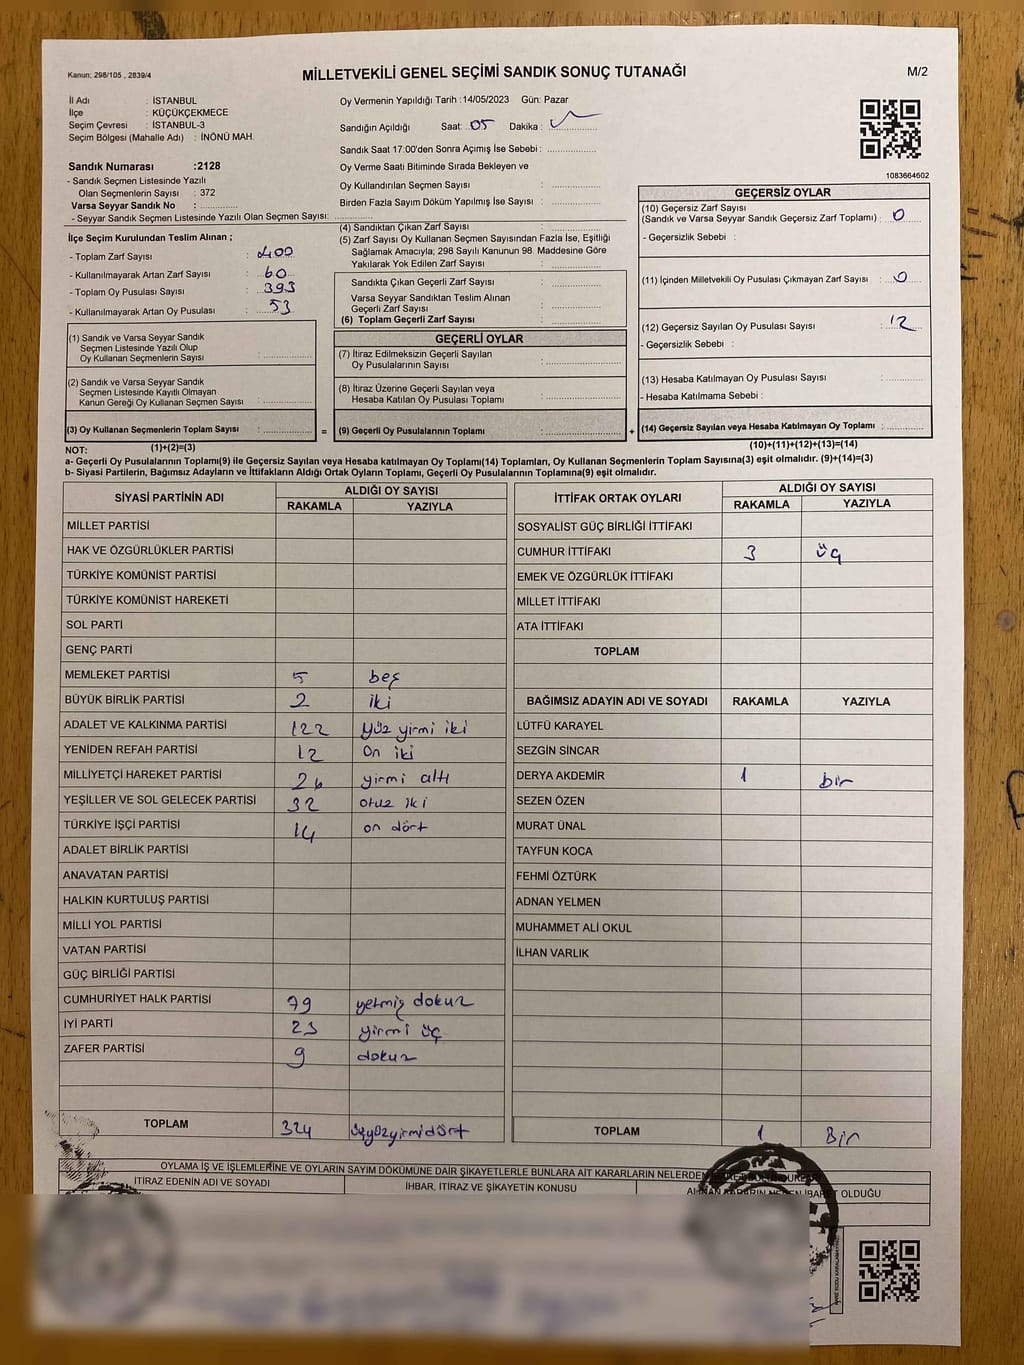 Kanun: 298/105 , 2839/4
MİLLETVEKİLİ GENEL SEÇİMİ SANDIK SONUÇ TUTANAĞI
M/2
İl Adı : İSTANBUL
İlçe : KÜÇÜKÇEKMECE
Seçim Çevresi : İSTANBUL-3
Seçim Bölgesi (Mahalle Adı) : İNÖNÜ MAH.
Sandık Numarası :2128
- Sandık Seçmen Listesinde Yazılı
Olan Seçmenlerin Sayısı : 372
Varsa Seyyar Sandık No :
- Seyyar Sandık Seçmen Listesinde Yazılı Olan Seçmen Sayısı:
İlçe Seçim Kurulundan Teslim Alınan ;
- Toplam Zarf Sayısı : 400
- Kullanılmayarak Artan Zarf Sayısı : 60
- Toplam Oy Pusulası Sayısı : 393
- Kullanılmayarak Artan Oy Pusulası : 53
(1) Sandık ve Varsa Seyyar Sandık
Seçmen Listesinde Yazılı Olup
Oy Kullanan Seçmenlerin Sayısı :
(2) Sandık ve Varsa Seyyar Sandık
Seçmen Listesinde Kayıtlı Olmayan
Kanun Gereği Oy Kullanan Seçmen Sayısı :
(3) Oy Kullanan Seçmenlerin Toplam Sayısı : =
(1)+(2)=(3)
Oy Vermenin Yapıldığı Tarih :14/05/2023 Gün: Pazar
Sandığın Açıldığı Saat: 05 Dakika :
Sandık Saat 17:00'den Sonra Açımış İse Sebebi :
Oy Verme Saati Bitiminde Sırada Bekleyen ve
Oy Kullandırılan Seçmen Sayısı :
Birden Fazla Sayım Döküm Yapılmış İse Sayısı :
(4) Sandıktan Çıkan Zarf Sayısı :
(5) Zarf Sayısı Oy Kullanan Seçmen Sayısından Fazla İse, Eşitliği
Sağlamak Amacıyla; 298 Sayılı Kanunun 98. Maddesine Göre
Yakılarak Yok Edilen Zarf Sayısı :
Sandıkta Çıkan Geçerli Zarf Sayısı :
Varsa Seyyar Sandıktan Teslim Alınan
Geçerli Zarf Sayısı :
(6) Toplam Geçerli Zarf Sayısı :
GEÇERLİ OYLAR
(7) İtiraz Edilmeksizin Geçerli Sayılan
Oy Pusulalarının Sayısı :
(8) İtiraz Üzerine Geçerli Sayılan veya
Hesaba Katılan Oy Pusulası Toplamı :
(9) Geçerli Oy Pusulalarının Toplamı : +
1083664602
GEÇERSİZ OYLAR
(10) Geçersiz Zarf Sayısı
(Sandık ve Varsa Seyyar Sandık Geçersiz Zarf Toplamı) : 0
- Geçersizlik Sebebi :
(11) İçinden Milletvekili Oy Pusulası Çıkmayan Zarf Sayısı : 0
(12) Geçersiz Sayılan Oy Pusulası Sayısı : 12
- Geçersizlik Sebebi :
(13) Hesaba Katılmayan Oy Pusulası Sayısı :
- Hesaba Katılmama Sebebi :
(14) Geçersiz Sayılan veya Hesaba Katılmayan Oy Toplamı :
(10)+(11)+(12)+(13)=(14)
NOT:
a- Geçerli Oy Pusulalarının Toplamı(9) ile Geçersiz Sayılan veya Hesaba katılmayan Oy Toplamı(14) Toplamları, Oy Kullanan Seçmenlerin Toplam Sayısına(3) eşit olmalıdır. (9)+(14)=(3)
b- Siyasi Partilerin, Bağımsız Adayların ve İttifakların Aldığı Ortak Oyların Toplamı, Geçerli Oy Pusulalarının Toplamına(9) eşit olmalıdır.
SİYASİ PARTİNİN ADI ALDIĞI OY SAYISI
RAKAMLA YAZIYLA
MİLLET PARTİSİ
HAK VE ÖZGÜRLÜKLER PARTİSİ
TÜRKİYE KOMÜNİST PARTİSİ
TÜRKİYE KOMÜNİST HAREKETİ
SOL PARTİ
GENÇ PARTİ
MEMLEKET PARTİSİ 5 beş
BÜYÜK BİRLİK PARTİSİ 2 iki
ADALET VE KALKINMA PARTİSİ 122 yüz yirmi iki
YENİDEN REFAH PARTİSİ 12 on iki
MİLLİYETÇİ HAREKET PARTİSİ 26 yirmi altı
YEŞİLLER VE SOL GELECEK PARTİSİ 32 otuz iki
TÜRKİYE İŞÇİ PARTİSİ 14 on dört
ADALET BİRLİK PARTİSİ
ANAVATAN PARTİSİ
HALKIN KURTULUŞ PARTİSİ
MİLLİ YOL PARTİSİ
VATAN PARTİSİ
GÜÇ BİRLİĞİ PARTİSİ
CUMHURİYET HALK PARTİSİ 79 yetmiş dokuz
İYİ PARTİ 23 yirmi üç
ZAFER PARTİSİ 9 dokuz
TOPLAM 324 üçyüzyirmidört
İTTİFAK ORTAK OYLARI ALDIĞI OY SAYISI
RAKAMLA YAZIYLA
SOSYALİST GÜÇ BİRLİĞİ İTTİFAKI
CUMHUR İTTİFAKI 3 üç
EMEK VE ÖZGÜRLÜK İTTİFAKI
MİLLET İTTİFAKI
ATA İTTİFAKI
TOPLAM
BAĞIMSIZ ADAYIN ADI VE SOYADI RAKAMLA YAZIYLA
LÜTFÜ KARAYEL
SEZGİN SİNCAR
DERYA AKDEMİR 1 bir
SEZEN ÖZEN
MURAT ÜNAL
TAYFUN KOCA
FEHMİ ÖZTÜRK
ADNAN YELMEN
MUHAMMET ALİ OKUL
İLHAN VARLIK
TOPLAM 1 Bir
OYLAMA İŞ VE İŞLEMLERİNE VE OYLARIN SAYIM DÖKÜMÜNE DAİR ŞİKAYETLERLE BUNLARA AİT KARARLARIN NELERDEN
İTİRAZ EDENİN ADI VE SOYADI İHBAR, İTİRAZ VE ŞİKAYETİN KONUSU ALINAN KARARIN NEDEN İBARET OLDUĞU